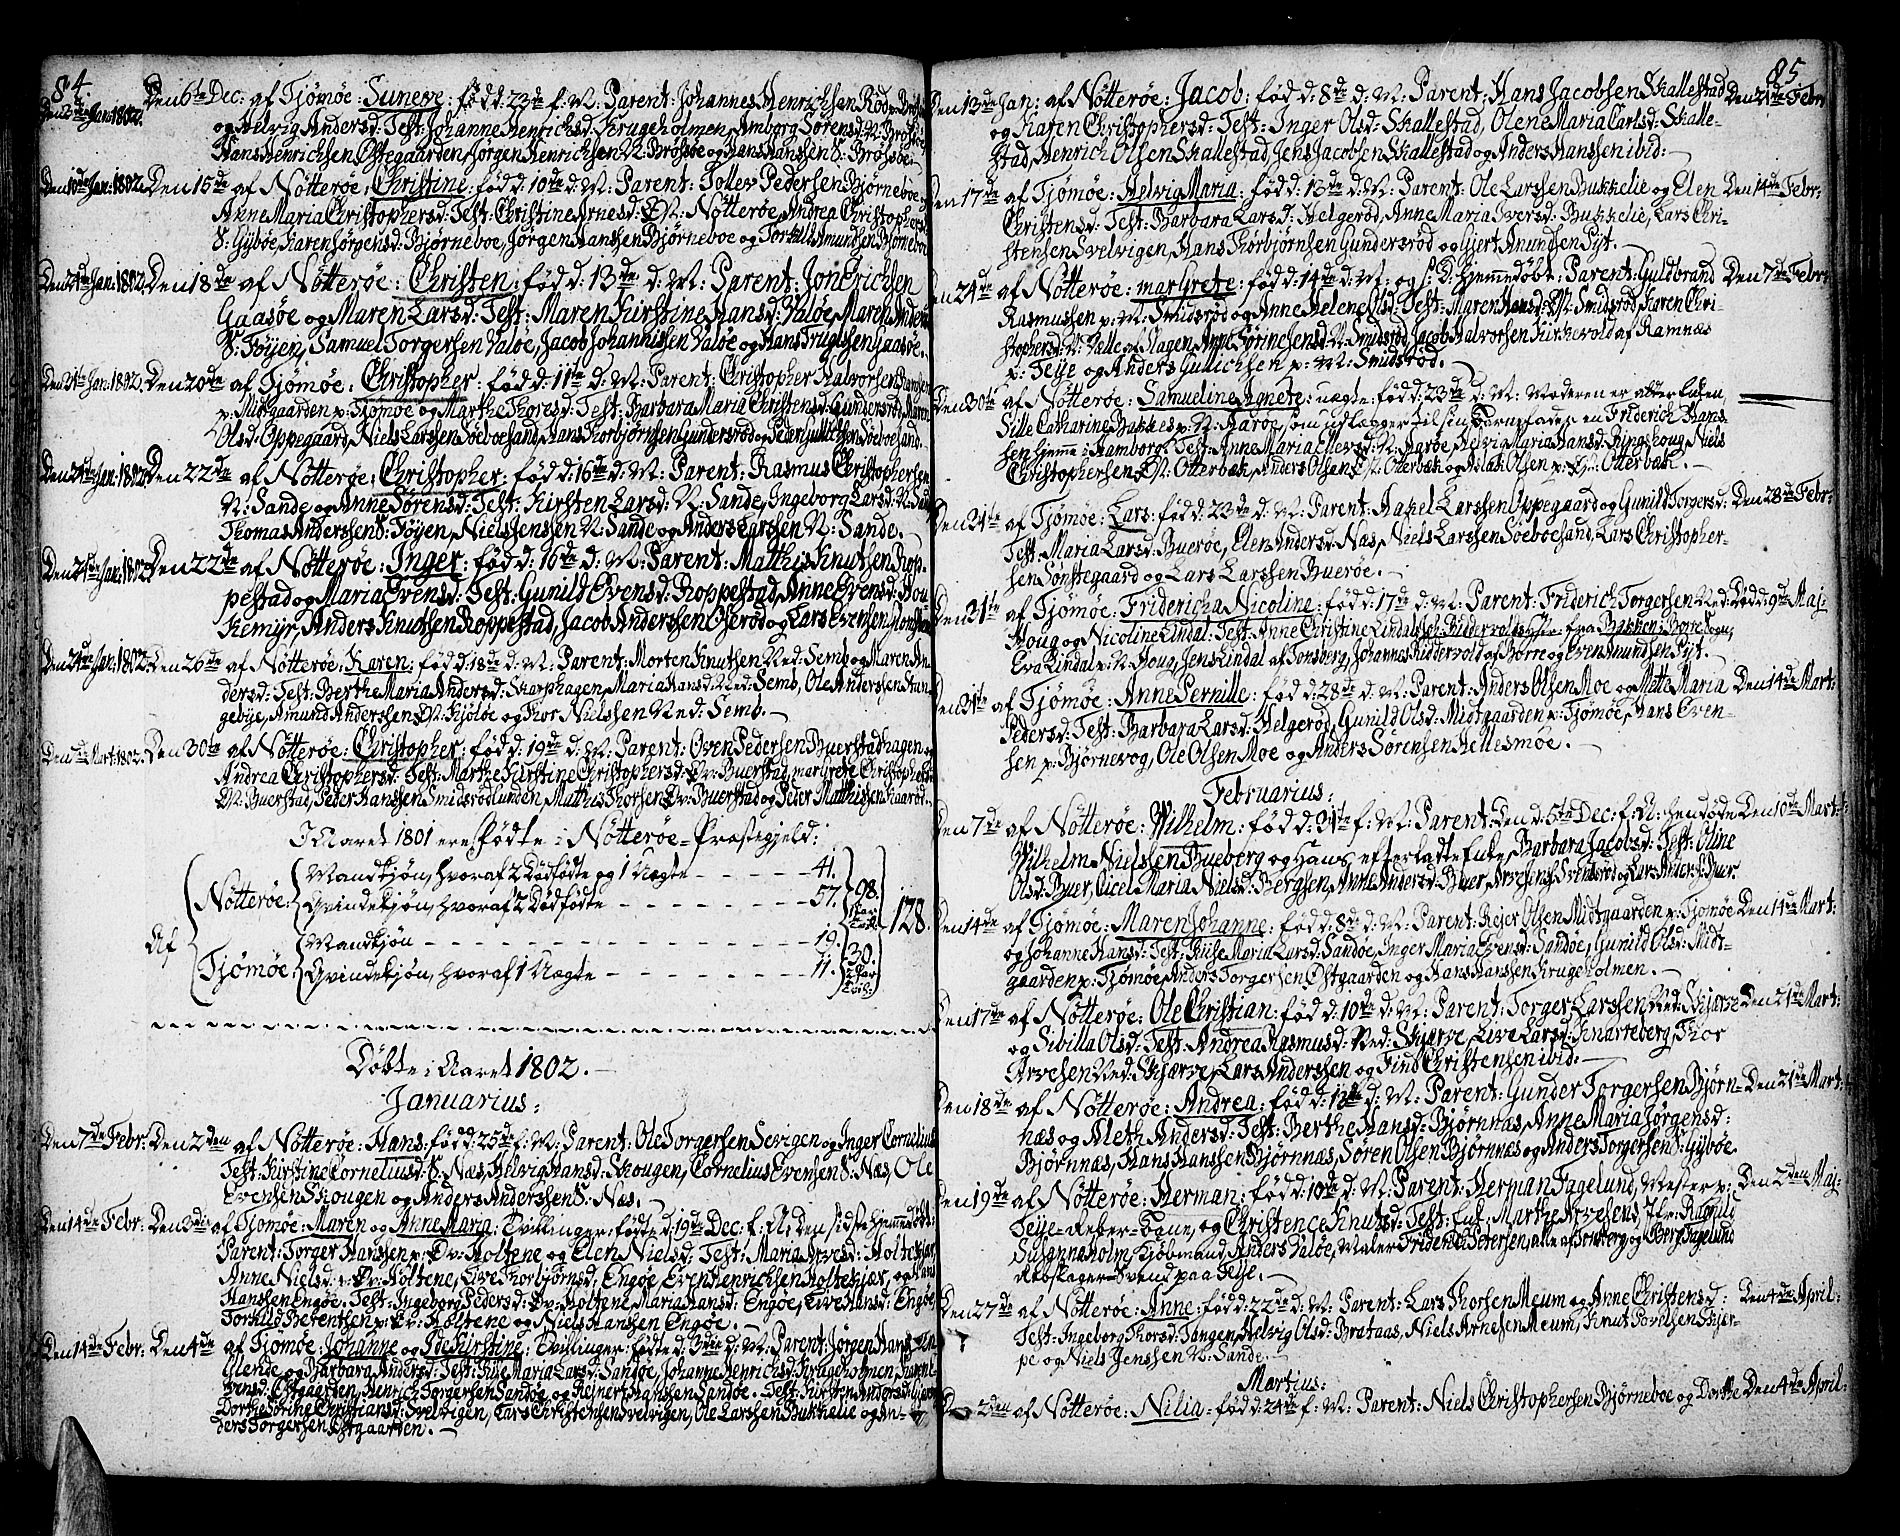 84.
Den 2den Jan: 1802. Den 6te Dec: af Tjømøe: Suneve: født d: 23de f: M: Parent: Johannes Henrichsen Rød
og Helvig Andersd: Test: Johanne Henricsd: Krugeholmen, Amborg Sørensd: N: Brøtsøe
Hans Henrichsen Østegaarden, Jørgen Henrichsen N: Brøtsøe og Hans Hanssen S: Brøtsøe.
Jan: 1802. Den 15de af Nøtterøe: Christine: født d: 10de d: M: Parent: Tollev Pedersen Bjørneboe
Anne Maria Christophersd: Test: Christine Arnesd: Nøtterøe, Andrea Christophersd:
S: Gyboe, Karen Jørgensd: Bjørneboe, Jørgen Hanssen Bjørneboe og Torkild Amundsen Bjørneboe
Jan: 1802. Den 18de af Nøtterøe: Christen: født d: 13de d: M: Parent: Jon Erichsen
Gaasøe og Maren Larsd: Test: Maren Kirstine Hansd: Valøe, Maren Andersd:
S: Føyen, Samuel Torgersen Valøe, Jacob Johannissen Valøe og Hans Truglsen Gaasøe.
Jan: 1802. Den 20de af Tjømøe: Christopher: født d: 11te d: M: Parent: Christopher Halvorsen
p: Midtgaarden p: Tjømøe og Marthe Thoresd: Test: Barbara Maria Christensd: Gundersrød, Maren
Olsd: Oppegaard, Niels Larssen Søeboesand, Hans Thorbjørnsen Gundersrød og Peder Gullichsen Søeboesand.
Den 24de Jan: 1802. Den 22de af Nøtterøe: Christopher: født d: 16de d: M: Parent: Rasmus Christophersen
N: Sande og Anne Sørensd: Test: Kirsten Larsd: N: Sande, Ingeborg Larsd: N: Sande
Thomas Anderssen S: Føyen, Niels Jenssen N: Sande og Anders Larssen N: Sande.
Jan: 1802. Den 22de af Nøtterøe: Inger: født d: 16de d: M: Parent: Matthis Knutsen Rop-
pestad og Maria Evensd: Test: Gunild Evensd: Roppestad, Anne Evensd: Hou-
kemyr, Anders Knutsen Roppestad, Jacob Anderssen Oserød og Lars Evensen
Den 24de Jan: 1802. Den 26de af Nøtterøe: Karen: født d: 18de d: M: Parent: Morten Knutsen Ned: Semb og Maren An-
dersd: Test: Berthe Maria Andersd: Skarphagen, Maria Hansd: Ned: Semb, Ole Anderssen Stan-
gebye, Amund Anderssen Ø: Kjøløe og Thor Nielssen Ned: Semb.
Mart: 1802. Den 30te af Nøtterøe: Christopher: født d: 19de d: M: Parent: Oven Pedersen Buerstadhagen og
Andrea Christophersd: Test: Marthe Kirstine Christophersd: Øv: Buerstad, margrete Christophersd:
N: Buerstad, Peter Hanssen Smidsrødlunden, Matthis Thorsen Øv: Buerstad og Peder Matthissen Kaarød.
I Aaret 1801 ere Fødte i Nøtterøe-Præstegjeld:
Af { Nøtterøe: { Mandkjøn, hvoraf 2 Dødfødte og 1 Uægte - - - - - 41. } 98.
Qvindekjøn, hvoraf 2 Dødfødte - - - - - - - - 57.
Tjømøe { Mandkjøn - - - - - - - - - - 19. } 30. } 128.
Qvindekjøn, hvoraf 1 Uægte - - - - - - - - - 11.
Døbte i Aaret 1802.
Januarius:
Den 7de Febr: Den 2den af Nøtterøe: Hans: født d: 25de f: M: Parent: Ole Torgersen Sevigen og Inger Cornelius
Test: Kirstine Corneliusd: S: Næs, Helvig Hansd: Skougen, Cornelius Evensen S: Næs, Ole
Evensen Skougen og Anders Anderssen S: Næs.
Den 14de Febr: Den 3die af Tjømøe: Maren og Anne Maria: Tvillinger: fødte d: 19de Dec: f: A: den sidste hjemmedøbt:
Parent: Torger Hanssen p: Øv: Holtene og Elen Nielsd: Test: Maria Arvesd: Holtekjær,
Anne Nielsd: p: Øv: Holtene, Live Thorbjørnsd: Engøe, Even Henrichsen Holtekjær, og Hans
Hanssen Engøe. Test: Ingeborg Pedersd: Øv: Holtene, Maria Hansd: Engøe, Live Hansd: Engøe
Torkild Berentsen p: Øv: Holtene og Niels Hanssen Engøe.
Den 14de Febr: Den 4de af Tjømøe: Johanne og Ide Kirstine: Tvillinger: fødte d: 3die d: M: Parent: Jørgen Hans
Glende og Barbara Andersd: Test: Kisse Maria Larsd: Sandøe, Johanne Henricsd: Krugeholmen, Karen E-
vensd: Østgaarden, Henrich Torgersen Sandøe og Reinert Hanssen Sandøe. Test: Kirsten Andersd:
Dorthe Sørine Christiansd: Svelvigen, Lars Christensen Svelvigen, Ole Larssen Bukkelie og An-
ders Torgersen Østgaarden.
85.
Den 13de Jan: af Nøtterøe: Jacob: født d: 8de d: M: Parent: Hans Jacobsen Skallestad Den 21de Febr:
og Karen Christophersd: Test: Inger Olsd: Skallestad, Olene Maria Carlsd: Skalle-
stad, Henrich Olsen Skallestad, Jens Jacobsen Skallestad og Anders Hanssen ibid:
Den 17de af Tjømøe: Helvig Maria: født d: 13de d: M: Parent: Ole Larssen Bukkelie og Elen Den 14de Febr:
Christensd: Test: Barbara Larsd: Helgerød, Anne Maria Iversd: Bukkelie, Lars Chri-
stensen Svelvigen, Hans Thorbjørnsen Gundersrød og Gjert Anundsen Pyt.
Den 24de af Nøtterøe: margrete: født d: 14de d: M: og s: D: hjemmedøbt: Parent: Guldbrand Den 7de Febr:
Rasmussen p: N: Smidsrød og Anne Helene Test: Maren Hansd: Smidsrød, Karen Chri-
stophersd: N: Vælle af Slagen, Anne Sørine Jensd: N: Smidsrød, Jacob Halvorssen Kirkevold af Ramnæs
p: Teije og Anders Gullichsen p: N: Smidsrød.
Den 30te af Nøtterøe: Samueline Agnete: uægte: født d: 23de d: M: Moderen er
Sille Catharine Bakkes p: N: Aarøe, som udlægger til sin Barnefader en Friderich Hans
sen hjemme i Hamborg. Test: Anne Maria Ellevsd: N: Aarøe, Helvig Maria Hansd: Ringshoug, Niels
Christophersen Otterbæk, Anders Olsen Otterbæk og Aslak Olsen p: Otterbæk.
Den 31te af Tjømøe: Lars: født d: 23de d: M: Parent: Aaxel Larssen Oppegaard og Gunild Torgersd: Den 28de Febr:
Test: Maria Larsd: Buerøe, Elen Andersd: Næs, Niels Larssen Søeboesand, Lars Christopher-
sen Sønstegaard og Lars Larssen Buerøe.
Den 31te af Tjømøe: Fridericha Nicoline: født d: 17de d: M: Parent: Friderich Torgersen Ned: Død d: 9de Maj:
Houg og Nicoline Lindal: Test: Anne Christine Lindal fra Bakken: Borre Sogn,
Eva Lindal p: N: Houg, Jens Lindal af Tønsberg, Johannes Riddervold af Borre og Even Amundsen Pyt.
Den 31te af Tjømøe: Anne Pernille: født d: 28de d: M: Parent: Anders Olsen Moe og Mette Maria Den 14de Mart:
Pedersd: Test: Barbara Larsd: Helgerød, Gunild Olsd: Midtgaarden p: Tjømøe, Hans Even-
sen p: Bjørnevog, Ole Olsen Moe og Anders Sørensen Hellesmøe.
Februarius:
Den 7de af Nøtterøe: Wilhelm: født d: 31te f: M: Parent: Den d: 5te Dec: f: A: hendøde Den 10de Mart:
Wilhelm Nielssen Bueberg og Hans efterladte Enke, Barbara Jacobsd: Test: Oline
Olsd: Buer, Cicel Maria Nielsd: Bergsen, Anne Andersd: Buer, Arve Svendsrød og Lars Anders: Buer.
Den 14de af Tjømøe: Maren Johanne: født d: 8de d: M: Parent: Rejer Olsen Midtgaarden p: Tjømøe Den 14de Mart:
og Johanne Hansd: Test: Kisse Maria Larsd: Sandøe, Inger Maria Evensd: Sandøe, Gunild Olsd: Mid-
gaarden p: Tjømøe, Anders Torgersen Østgaarden og Hans Hanssen Krugeholmen.
Den 17de af Nøtterøe: Ole Christian: født d: 10de d: M: Parent: Torger Larssen Ned: Skjærve Den 21de Mart:
og Sibilla Olsd: Test: Andrea Rasmusd: Ned: Skjærve, Live Larsd: Knarreberg, Thor
Arvesen Ned: Skjærve, Lars Anderssen og Find Christensen ibid:
Den 18de af Nøtterøe: Andrea: født d: 12te d: M: Parent: Gunder Torgersen Bjørn- Den 21de Mart:
næs og Aleth Andersd: Test: Berthe Hansd: Bjørnnæs, Anne Maria Jørgensd:
Bjørnnæs, Hans Hanssen Bjørnnæs, Søren Olsen Bjørnnæs og Anders Torgersen S: Gyboe.
Den 19de af Nøtterøe: Herman: født d: 10de d: M: Parent: Herman Fagelund, Mester p: Den 2den Maj:
Teije-Reber-Bane, og Christence Knutsd: Test: Marthe Arvesens,
Susanna Holm, Kjøbmand Anders Valøe, Maler Frideric Petersen, alle af Tønsberg og Berg Fagelund
Rebslager-Svend paa Teije.
Den 27de af Nøtterøe: Anne: født d: 22de d: M: Parent: Lars Thorsen Meum og Anne Christensd: Den 4de April:
Test: Ingeborg Thorsd: Tangen, Helvig Olsd: Brataas, Niels Arnesen Meum, Knut Tordsen Skjer-
pe og Niels Jenssen N: Sande.
Martius:
Den 2den af Nøtterøe: Nilia: født d: 24de f: M: Parent: Niels Christophersen Bjørneboe og Dorthe Den 4de April: